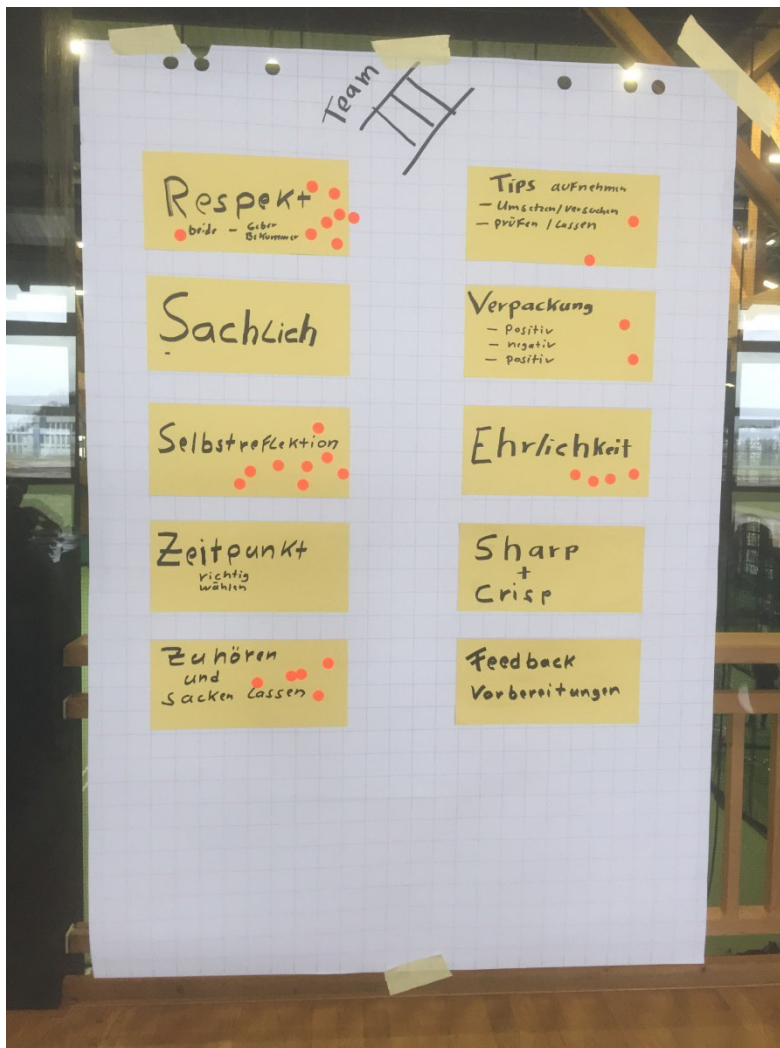 Team III
Respekt
beide - Geber
Bekommer
Sachlich
Selbstreflektion
Zeitpunkt
richtig
wählen
Zuhören
und
sacken lassen
Tips aufnehmen
- Umsetzen/versuchen
- prüfen / lassen
Verpackung
- positiv
- negativ
- positiv
Ehrlichkeit
Sharp
+
Crisp
Feedback
Vorbereitungen